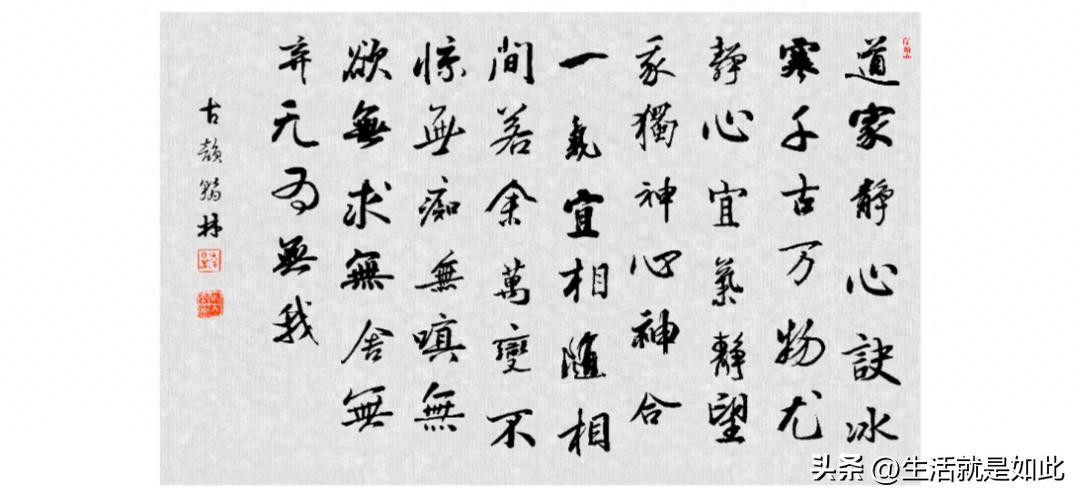 道家静心訣冰
寒千古万物尤
静心宜氣静望
我獨神心神合
一氣宜相隨相
間若余萬變不
惊無痴無嗔無
欲無求無舍無
弃无为無我
古韻翰林
头条 @生活就是如此